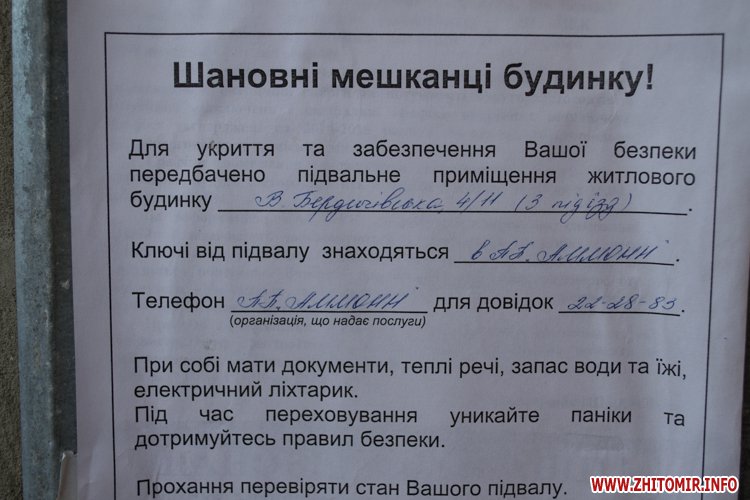 Шановні мешканці будинку!
Для укриття та забезпечення Вашої безпеки
передбачено підвальне приміщення житлового
будинку В. Бердичівська, 4/11 (3 під'їзд).
Ключі від підвалу знаходяться в
Телефон для довідок 22-28-83.
(організація, що надає послуги)
При собі мати документи, теплі речі, запас води та їжі,
електричний ліхтарик.
Під час переховування уникайте паніки та
дотримуйтесь правил безпеки.
Прохання перевіряти стан Вашого підвалу.
WWW.ZHITOMIR.INFO